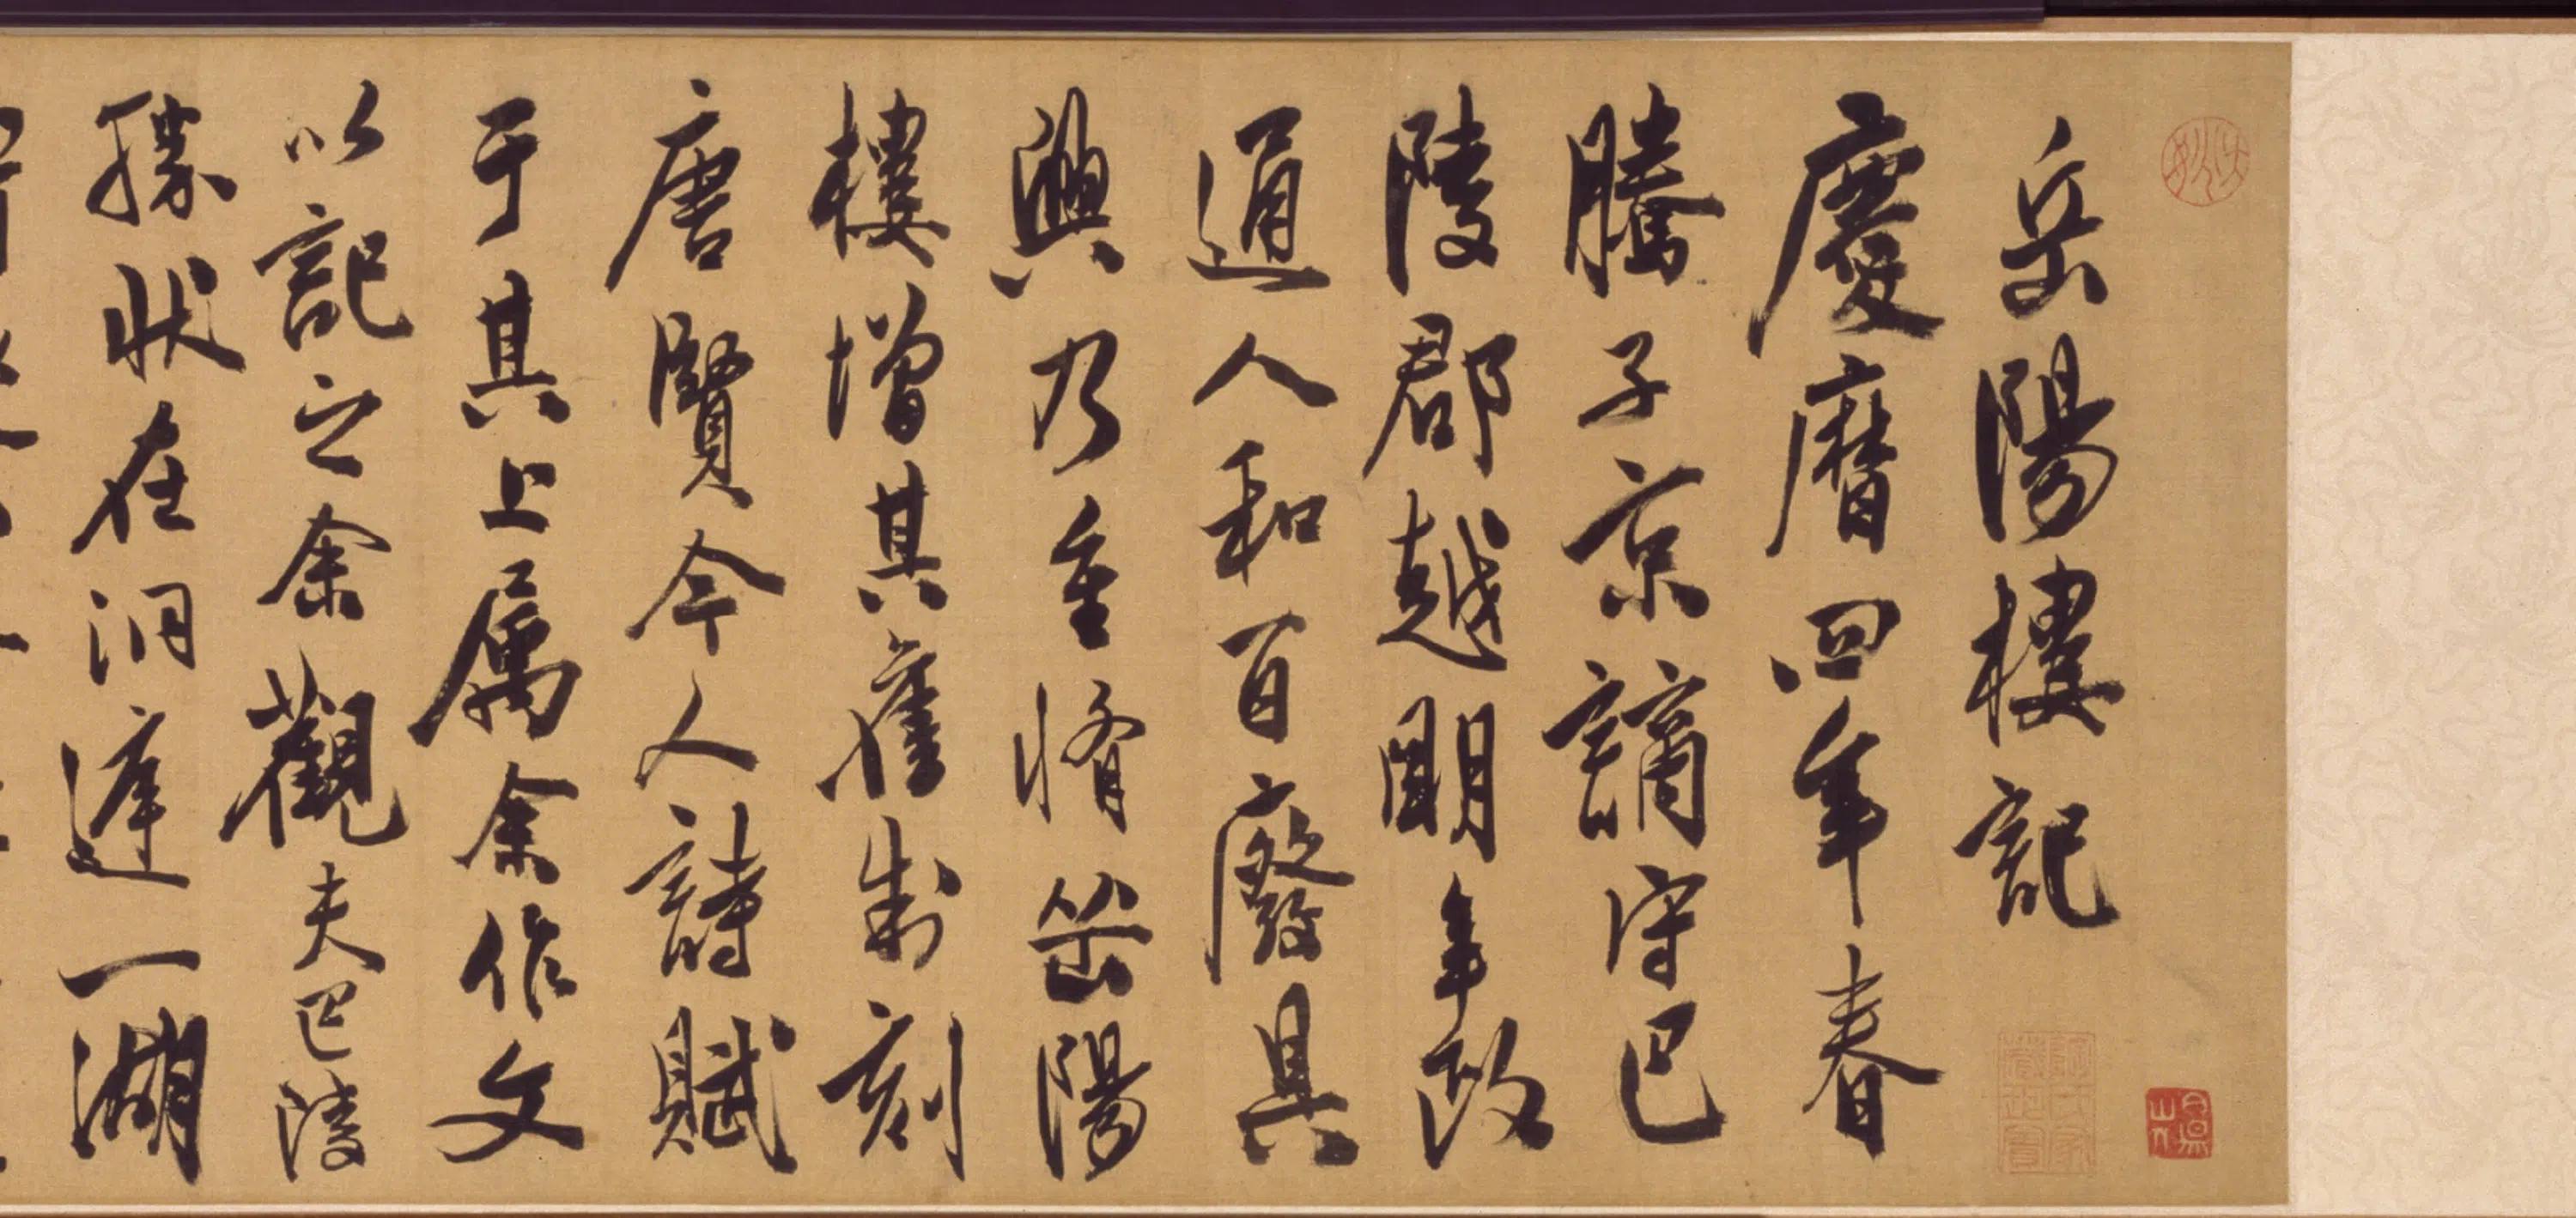 岳陽樓記
慶曆四年春
騰子京謫守巴
陵郡越明年政
通人和百廢具
興乃重脩岳陽
樓增其舊制刻
唐賢今人詩賦
于其上属余作文
以記之余觀夫巴陵
勝狀在洞庭一湖